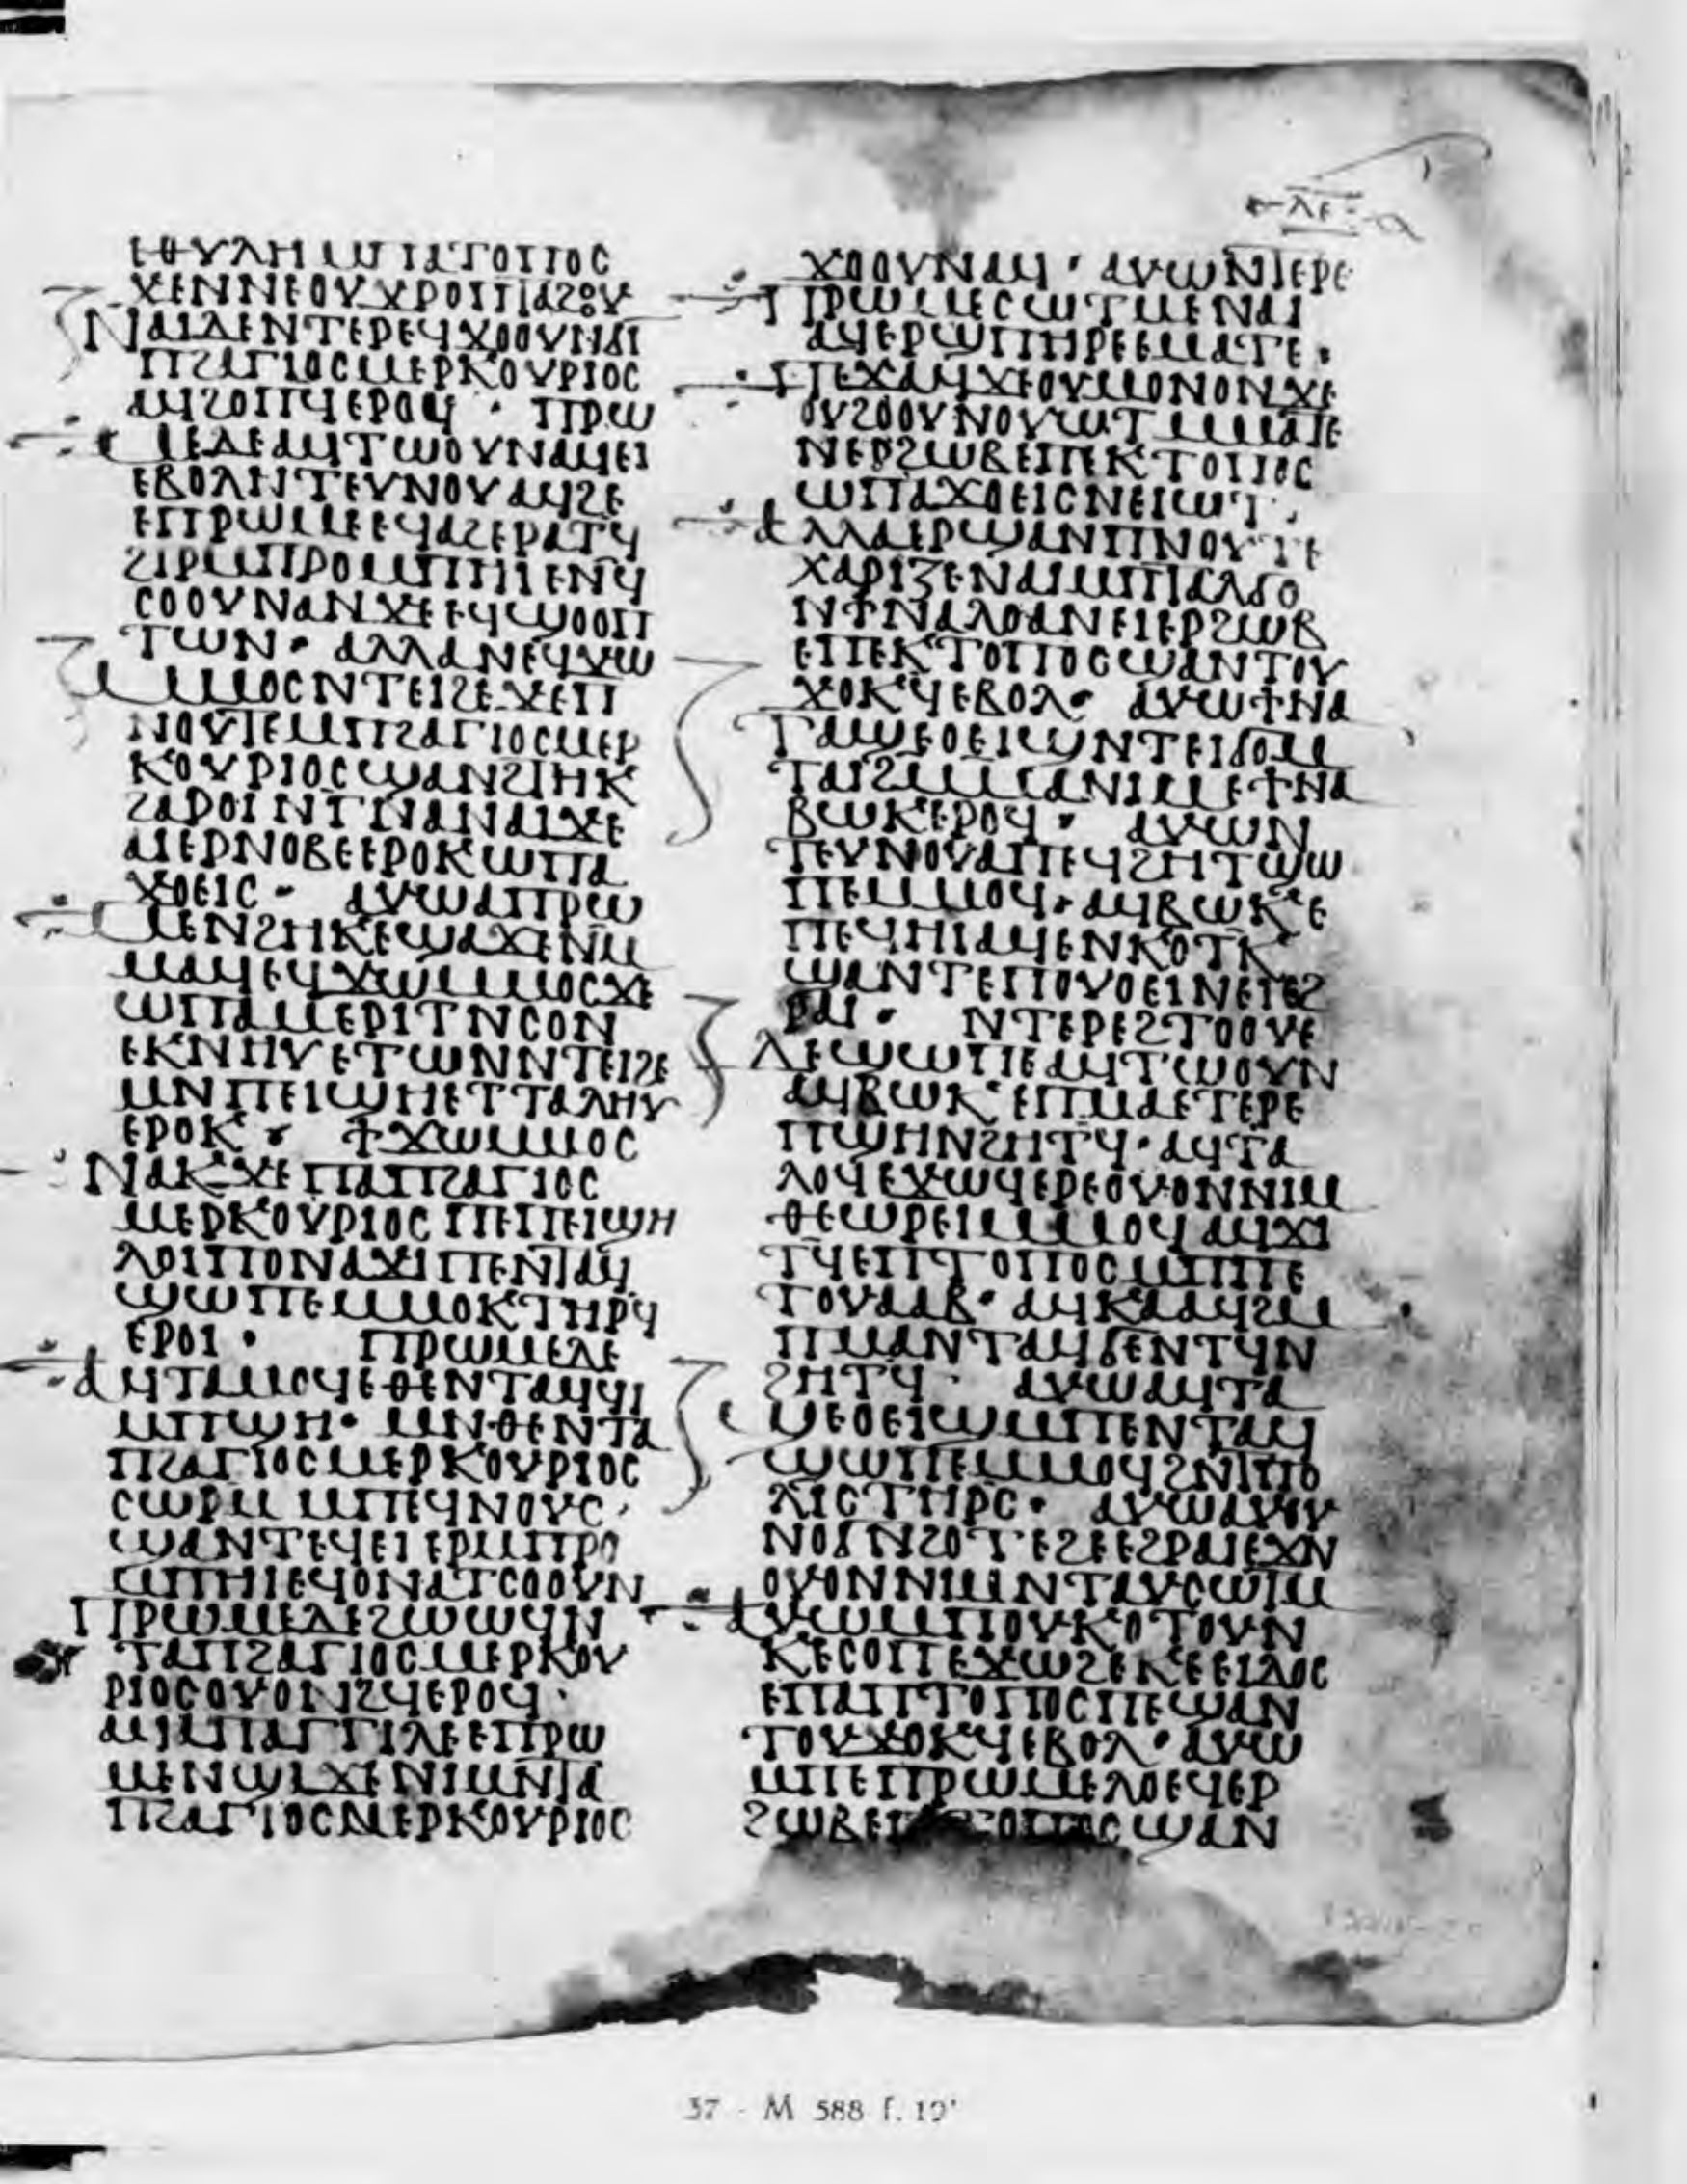 ⲗⲉ
ⲉⲑⲩⲗⲏ ⲙⲡⲁⲧⲟⲡⲟⲥ
ϫⲉⲛⲛⲉⲟⲩⲭⲣⲟⲡⲓⲁϩⲟⲩ
ⲛⲁⲓⲇⲉⲛⲧⲉⲣⲉϥϫⲟⲟⲩⲛϭⲓ
ⲡϩⲁⲅⲓⲟⲥⲙⲉⲣⲕⲟⲩⲣⲓⲟⲥ
ⲁϥϩⲟⲡϥⲉⲣⲟϥ · ⲡⲣⲱ
ⲙⲉⲇⲉⲁϥⲧⲱⲟⲩⲛⲁϥⲉⲓ
ⲉⲃⲟⲗⲛⲧⲉⲩⲛⲟⲩⲁϥϩⲉ
ⲉⲡⲣⲱⲙⲉⲉϥⲁϩⲉⲣⲁⲧϥ
ϩⲓⲣⲙⲡⲣⲟⲙⲡⲏⲓⲉⲛϥ
ⲥⲟⲟⲩⲛⲁⲛϫⲉⲉϥϣⲟⲟⲡ
ⲧⲱⲛ · ⲁⲗⲗⲁⲛⲉϥϫⲱ
ⲙⲙⲟⲥⲛⲧⲉⲓϩⲉϫⲉⲡ
ⲛⲟⲩⲧⲉⲙⲡϩⲁⲅⲓⲟⲥⲙⲉⲣ
ⲕⲟⲩⲣⲓⲟⲥϣⲁⲛϩⲧⲏⲕ
ϩⲁⲣⲟⲓⲛⲅⲛⲁⲛⲁⲓϫⲉ
ⲁⲓⲉⲣⲛⲟⲃⲉⲉⲣⲟⲕⲱⲡⲁ
ϫⲟⲉⲓⲥ · ⲁⲩⲱⲁⲡⲣⲱ
ⲙⲉⲛϩⲏⲕⲉϣⲁϫⲉⲛⲙ
ⲙⲁϥⲉϥϫⲱⲙⲙⲟⲥϫⲉ
ⲱⲡⲁⲙⲉⲣⲓⲧⲛⲥⲟⲛ
ⲉⲕⲛⲏⲩⲉⲧⲱⲛⲛⲧⲉⲓϩⲉ
ⲙⲛⲡⲉⲓϣⲏⲉⲧⲧⲁⲗⲏⲩ
ⲉⲣⲟⲕ · ϯϫⲱⲙⲙⲟⲥ
ⲛⲁⲕϫⲉⲡⲁⲡϩⲁⲅⲓⲟⲥ
ⲙⲉⲣⲕⲟⲩⲣⲓⲟⲥⲡⲉⲡⲉⲓϣⲏ
ⲗⲟⲓⲡⲟⲛⲁϫⲓⲡⲉⲛⲧⲁϥ
ϣⲱⲡⲉⲙⲙⲟⲕⲧⲏⲣϥ
ⲉⲣⲟⲓ · ⲡⲣⲱⲙⲉⲇⲉ
ⲁϥⲧⲁⲙⲟϥⲉⲑⲉⲛⲧⲁϥϥⲓ
ⲙⲡϣⲏ · ⲙⲛⲑⲉⲛⲧⲁ
ⲡϩⲁⲅⲓⲟⲥⲙⲉⲣⲕⲟⲩⲣⲓⲟⲥ
ⲥⲱⲣⲙ ⲙⲡⲉϥⲛⲟⲩⲥ ·
ϣⲁⲛⲧⲉϥⲉⲓⲉⲣⲙⲡⲣⲟ
ⲙⲡⲏⲓⲉϥⲟⲛⲁⲧⲥⲟⲟⲩⲛ
ⲡⲣⲱⲙⲉⲇⲉϩⲱⲱϥⲛ
ⲧⲁⲡϩⲁⲅⲓⲟⲥⲙⲉⲣⲕⲟⲩ
ⲣⲓⲟⲥⲟⲩⲟⲛϩϥⲉⲣⲟϥ ·
ⲁϥⲁⲡⲁⲅⲅⲓⲗⲉⲉⲡⲣⲱ
ⲙⲉⲛϣⲁϫⲉⲛⲓⲙⲛⲧⲁ
ⲡϩⲁⲅⲓⲟⲥⲙⲉⲣⲕⲟⲩⲣⲓⲟⲥ
ϫⲟⲟⲩⲛⲁϥ · ⲁⲩⲱⲛⲧⲉⲣⲉ
ⲡⲣⲱⲙⲉⲥⲱⲧⲙⲉⲛⲁⲓ
ⲁϥⲉⲣϣⲡⲏⲣⲉⲉⲙⲁⲧⲉ ·
ⲡⲉϫⲁϥϫⲉⲟⲩⲙⲟⲛⲟⲛϫⲉ
ⲟⲩϩⲟⲟⲩⲛⲟⲩⲱⲧⲙⲙⲁⲧⲉ
ⲛⲉⲣϩⲱⲃⲉⲡⲉⲕⲧⲟⲡⲟⲥ
ⲱⲡⲁϫⲟⲉⲓⲥⲛⲉⲓⲱⲧ ·
ⲁⲗⲗⲁⲉⲣϣⲁⲛⲡⲛⲟⲩⲧⲉ
ⲭⲁⲣⲓⲍⲉⲛⲁⲓⲙⲡⲧⲁⲗϭⲟ
ⲛϯⲛⲁⲗⲟⲁⲛⲉⲓⲉⲣϩⲱⲃ
ⲉⲡⲉⲕⲧⲟⲡⲟⲥϣⲁⲛⲧⲟⲩ
ϫⲟⲕϥⲉⲃⲟⲗ · ⲁⲩⲱϯⲛⲁ
ⲧⲁϣⲉⲟⲉⲓϣⲛⲧⲉⲓϭⲟⲙ
ⲧⲁⲓϩⲙⲙⲁⲛⲓⲙⲉϯⲛⲁ
ⲃⲱⲕⲉⲣⲟϥ · ⲁⲩⲱⲛ
ⲧⲉⲩⲛⲟⲩⲁⲡⲉϥϩⲏⲧϣⲱ
ⲡⲉⲙⲙⲟϥ · ⲁϥⲃⲱⲕⲉ
ⲡⲉϥⲏⲓⲁϥⲉⲛⲕⲟⲧⲕ
ϣⲁⲛⲧⲉⲡⲟⲩⲟⲉⲓⲛⲉⲓⲉϩ
ⲣⲁⲓ · ⲛⲧⲉⲣⲉϩⲧⲟⲟⲩⲉ
ⲇⲉϣⲱⲡⲉⲁϥⲧⲱⲟⲩⲛ
ⲁϥⲃⲱⲕⲉⲡⲙⲁⲉⲧⲉⲣⲉ
ⲡϣⲏⲛϩⲏⲧϥ · ⲁϥⲧⲁ
ⲗⲟϥⲉϫⲱϥⲉⲣⲉⲟⲩⲟⲛⲛⲓⲙ
ⲑⲉⲱⲣⲉⲓⲙⲙⲟϥⲁϥϫⲓ
ⲧϥⲉⲡⲧⲟⲡⲟⲥⲙⲡⲡⲉ
ⲧⲟⲩⲁⲁⲃ · ⲁϥⲕⲁⲁϥϩⲙ
ⲡⲙⲁⲛⲧⲁϥϭⲉⲛⲧϥⲛ
ϩⲏⲧϥ · ⲁⲩⲱⲁϥⲧⲁ
ϣⲉⲟⲉⲓϣⲙⲡⲉⲛⲧⲁϥ
ϣⲱⲡⲉⲙⲙⲟϥϩⲛⲧⲡⲟ
ⲗⲓⲥⲧⲏⲣⲥ · ⲁⲩⲱⲁⲩ
ⲛⲟϭⲛϩⲟⲧⲉϩⲉⲉϩⲣⲁⲓⲉϫⲛ
ⲟⲩⲟⲛⲛⲓⲙⲛⲧⲁⲩⲥⲱⲧⲙ
ⲁⲩⲱⲙⲡⲟⲩⲕⲟⲧⲟⲩⲛ
ⲕⲉⲥⲟⲡⲉϫⲱϩⲉⲕⲉⲉⲓⲇⲟⲥ
ⲉⲡⲁⲡⲧⲟⲡⲟⲥⲡⲉϣⲁⲛ
ⲧⲟⲩϫⲟⲕϥⲉⲃⲟⲗ · ⲁⲩⲱ
ⲙⲡⲉⲡⲣⲱⲙⲉⲗⲟⲉϥⲉⲣ
ϩⲱⲃⲉⲡⲧⲟⲡⲟⲥϣⲁⲛ
37 - M 588 f. 19ʳ